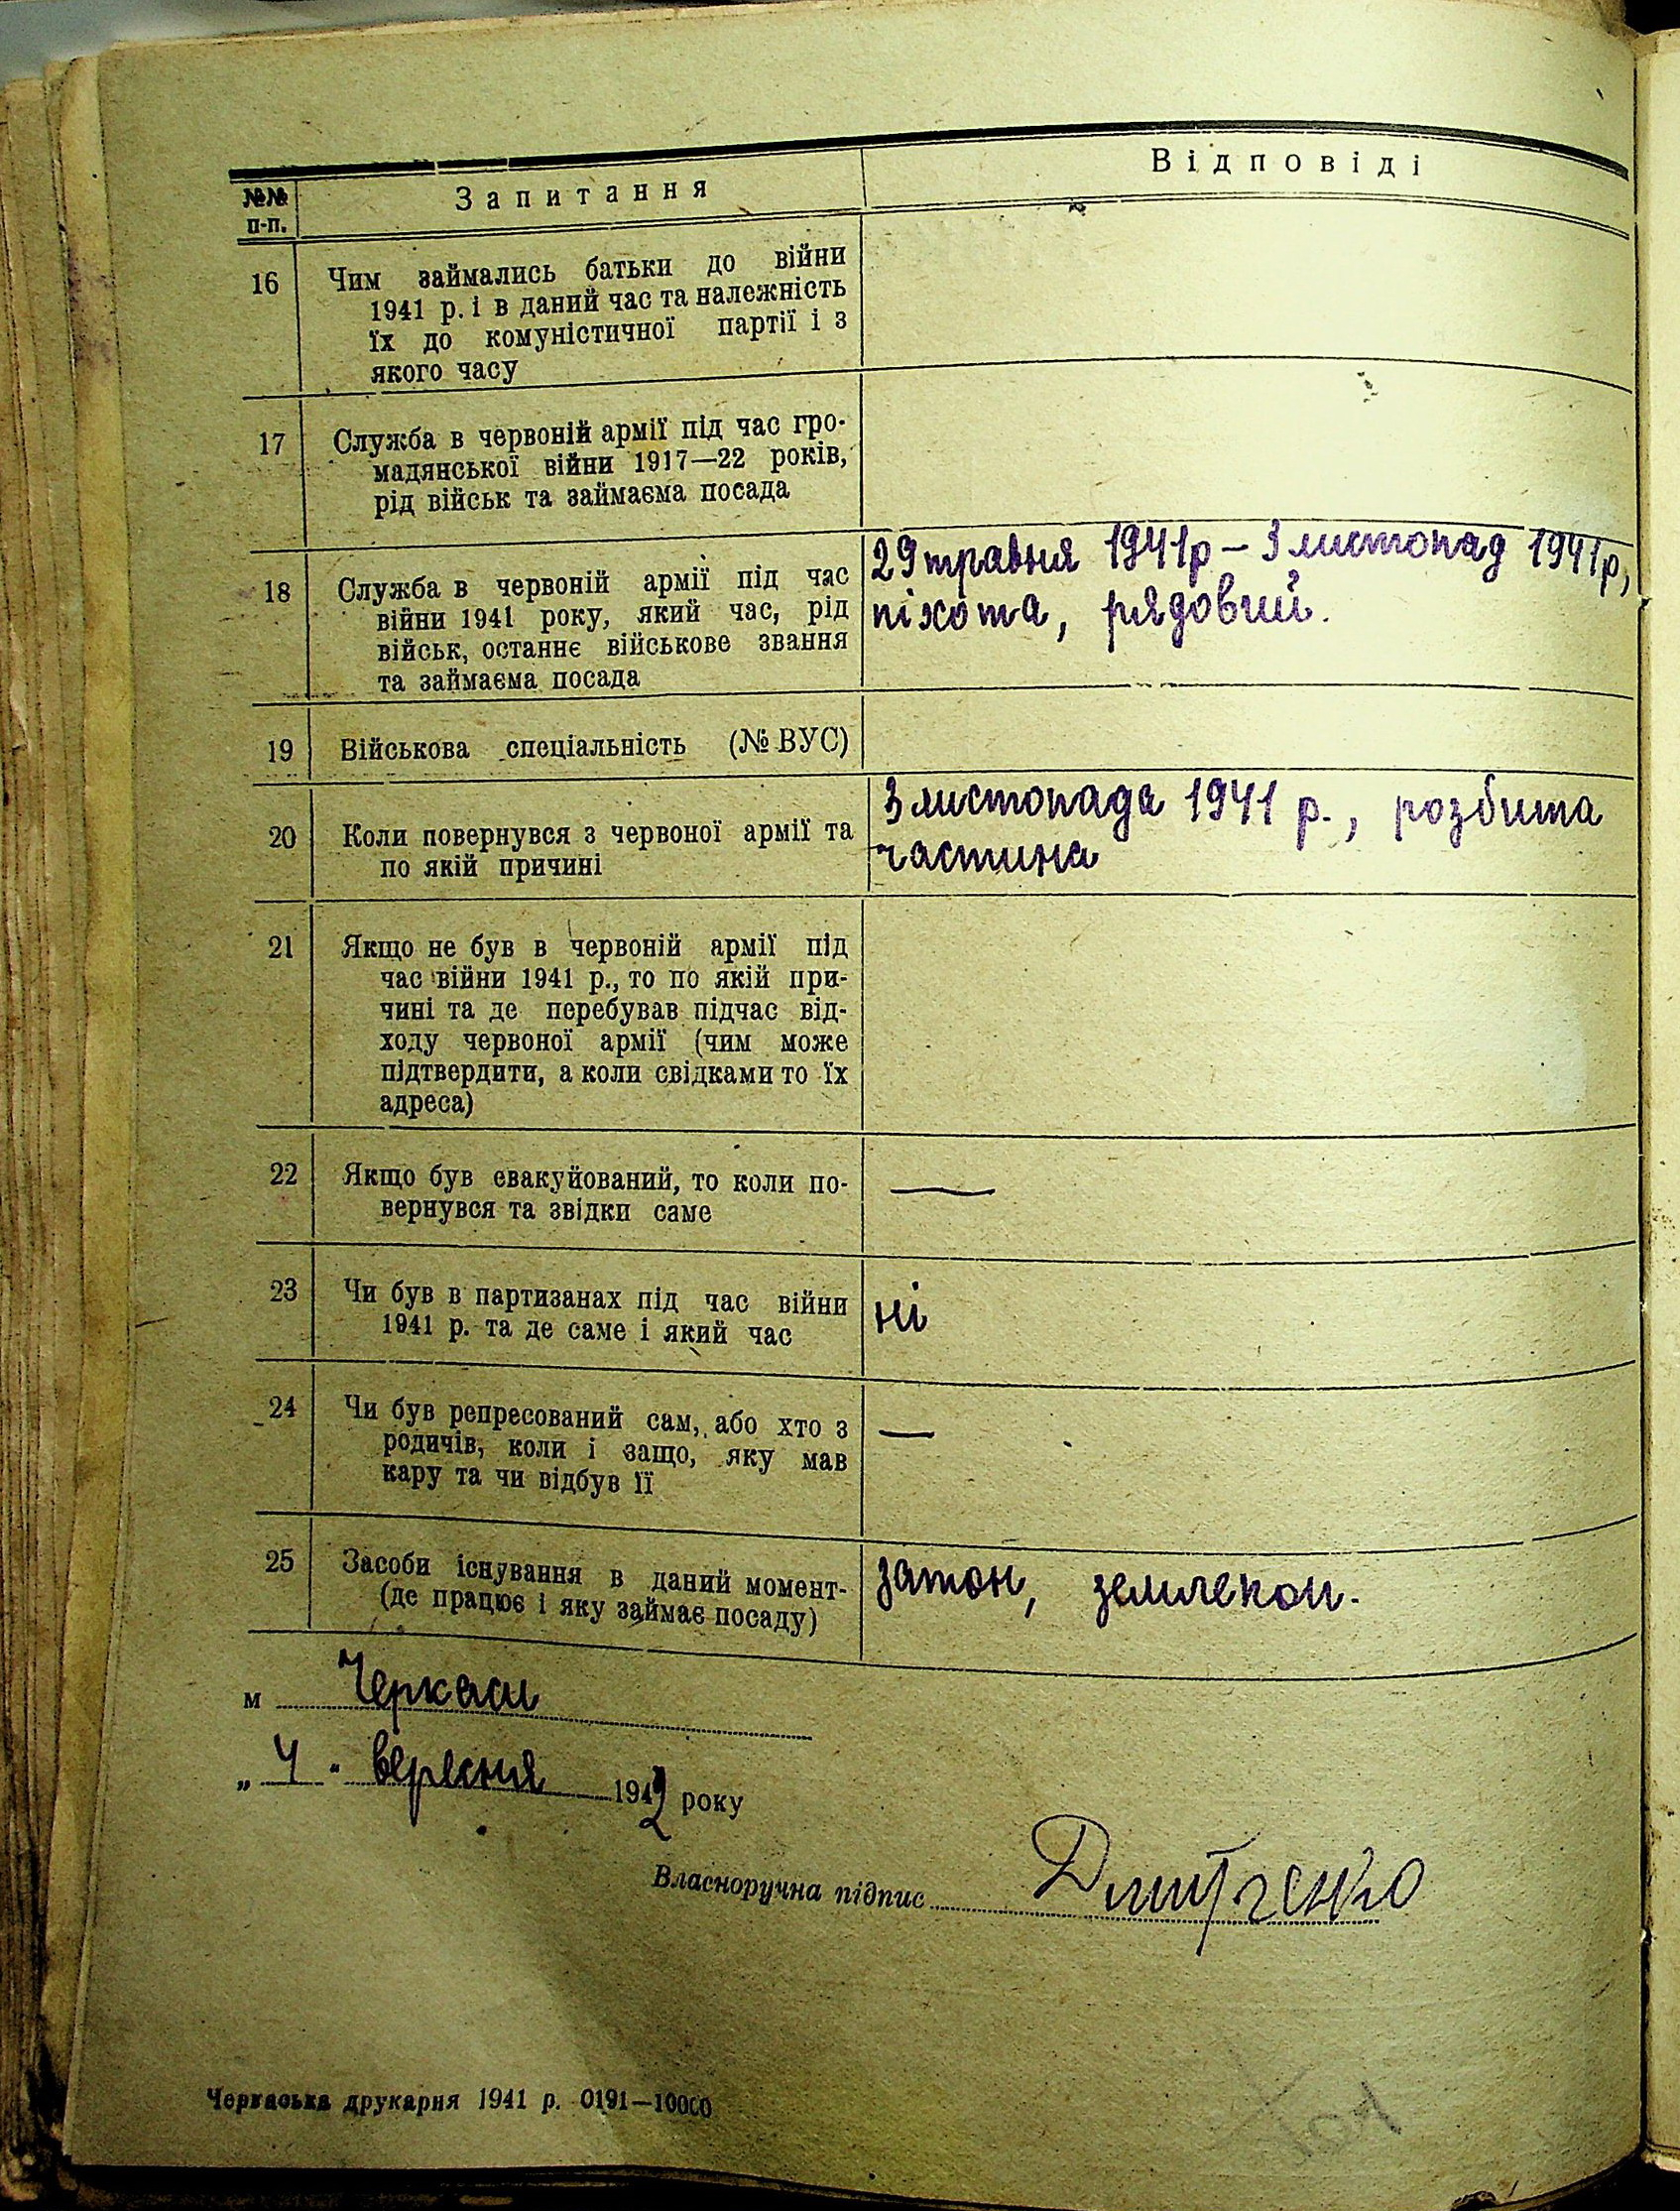 №№ п-п. Запитання Відповіді
16 Чим займались батьки до війни
1941 р. і в даний час та належність
їх до комуністичної партії і з
якого часу
17 Служба в червоній армії під час гро-
мадянської війни 1917—22 років,
рід військ та займаєма посада
18 Служба в червоній армії під час
війни 1941 року, який час, рід
військ, останнє військове звання
та займаєма посада
29 травня 1941р – 3 листопад 1941р,
піхота, рядовий.
19 Військова спеціальність (№ ВУС)
20 Коли повернувся з червоної армії та
по якій причині
3 листопада 1941 р., розбита
частина
21 Якщо не був в червоній армії під
час війни 1941 р., то по якій при-
чині та де перебував підчас від-
ходу червоної армії (чим може
підтвердити, а коли свідками то їх
адреса)
22 Якщо був евакуйований, то коли по-
вернувся та звідки саме
—
23 Чи був в партизанах під час війни
1941 р. та де саме і який час
ні
24 Чи був репресований сам, або хто з
родичів, коли і защо, яку мав
кару та чи відбув її
—
25 Засоби існування в даний момент-
(де працює і яку займає посаду)
затон, землекоп.
м Черкаси
„ 4 " вересня 1942 року
Власноручна підпис Дмитренко
Черкаська друкарня 1941 р. 0191—10000